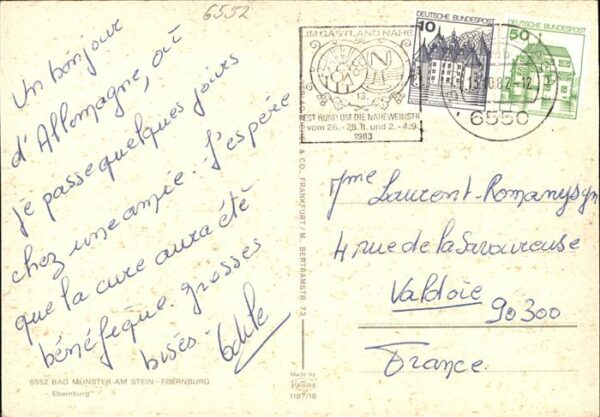 6552
Un bonjour
d'Allemagne, où
je passe quelques jours
chez une amie. J'espère
que la cure aura été
bénéfique. Grosses
bises.
6552 BAD MÜNSTER AM STEIN - EBERNBURG
"Ebernburg"
& CO. FRANKFURT/M. BERTRAMSTR. 73
Made by
Krüger
1187/18
IM GASTLAND NAHE
FEST RUND UM DIE NAHEWEINSTR.
vom 26.-28.8. und 2.-4.9.
1983
10 DEUTSCHE BUNDESPOST
50 DEUTSCHE BUNDESPOST
6550
Mme Laurent-
4 rue de la Savoureuse
Valdoie 90300
France